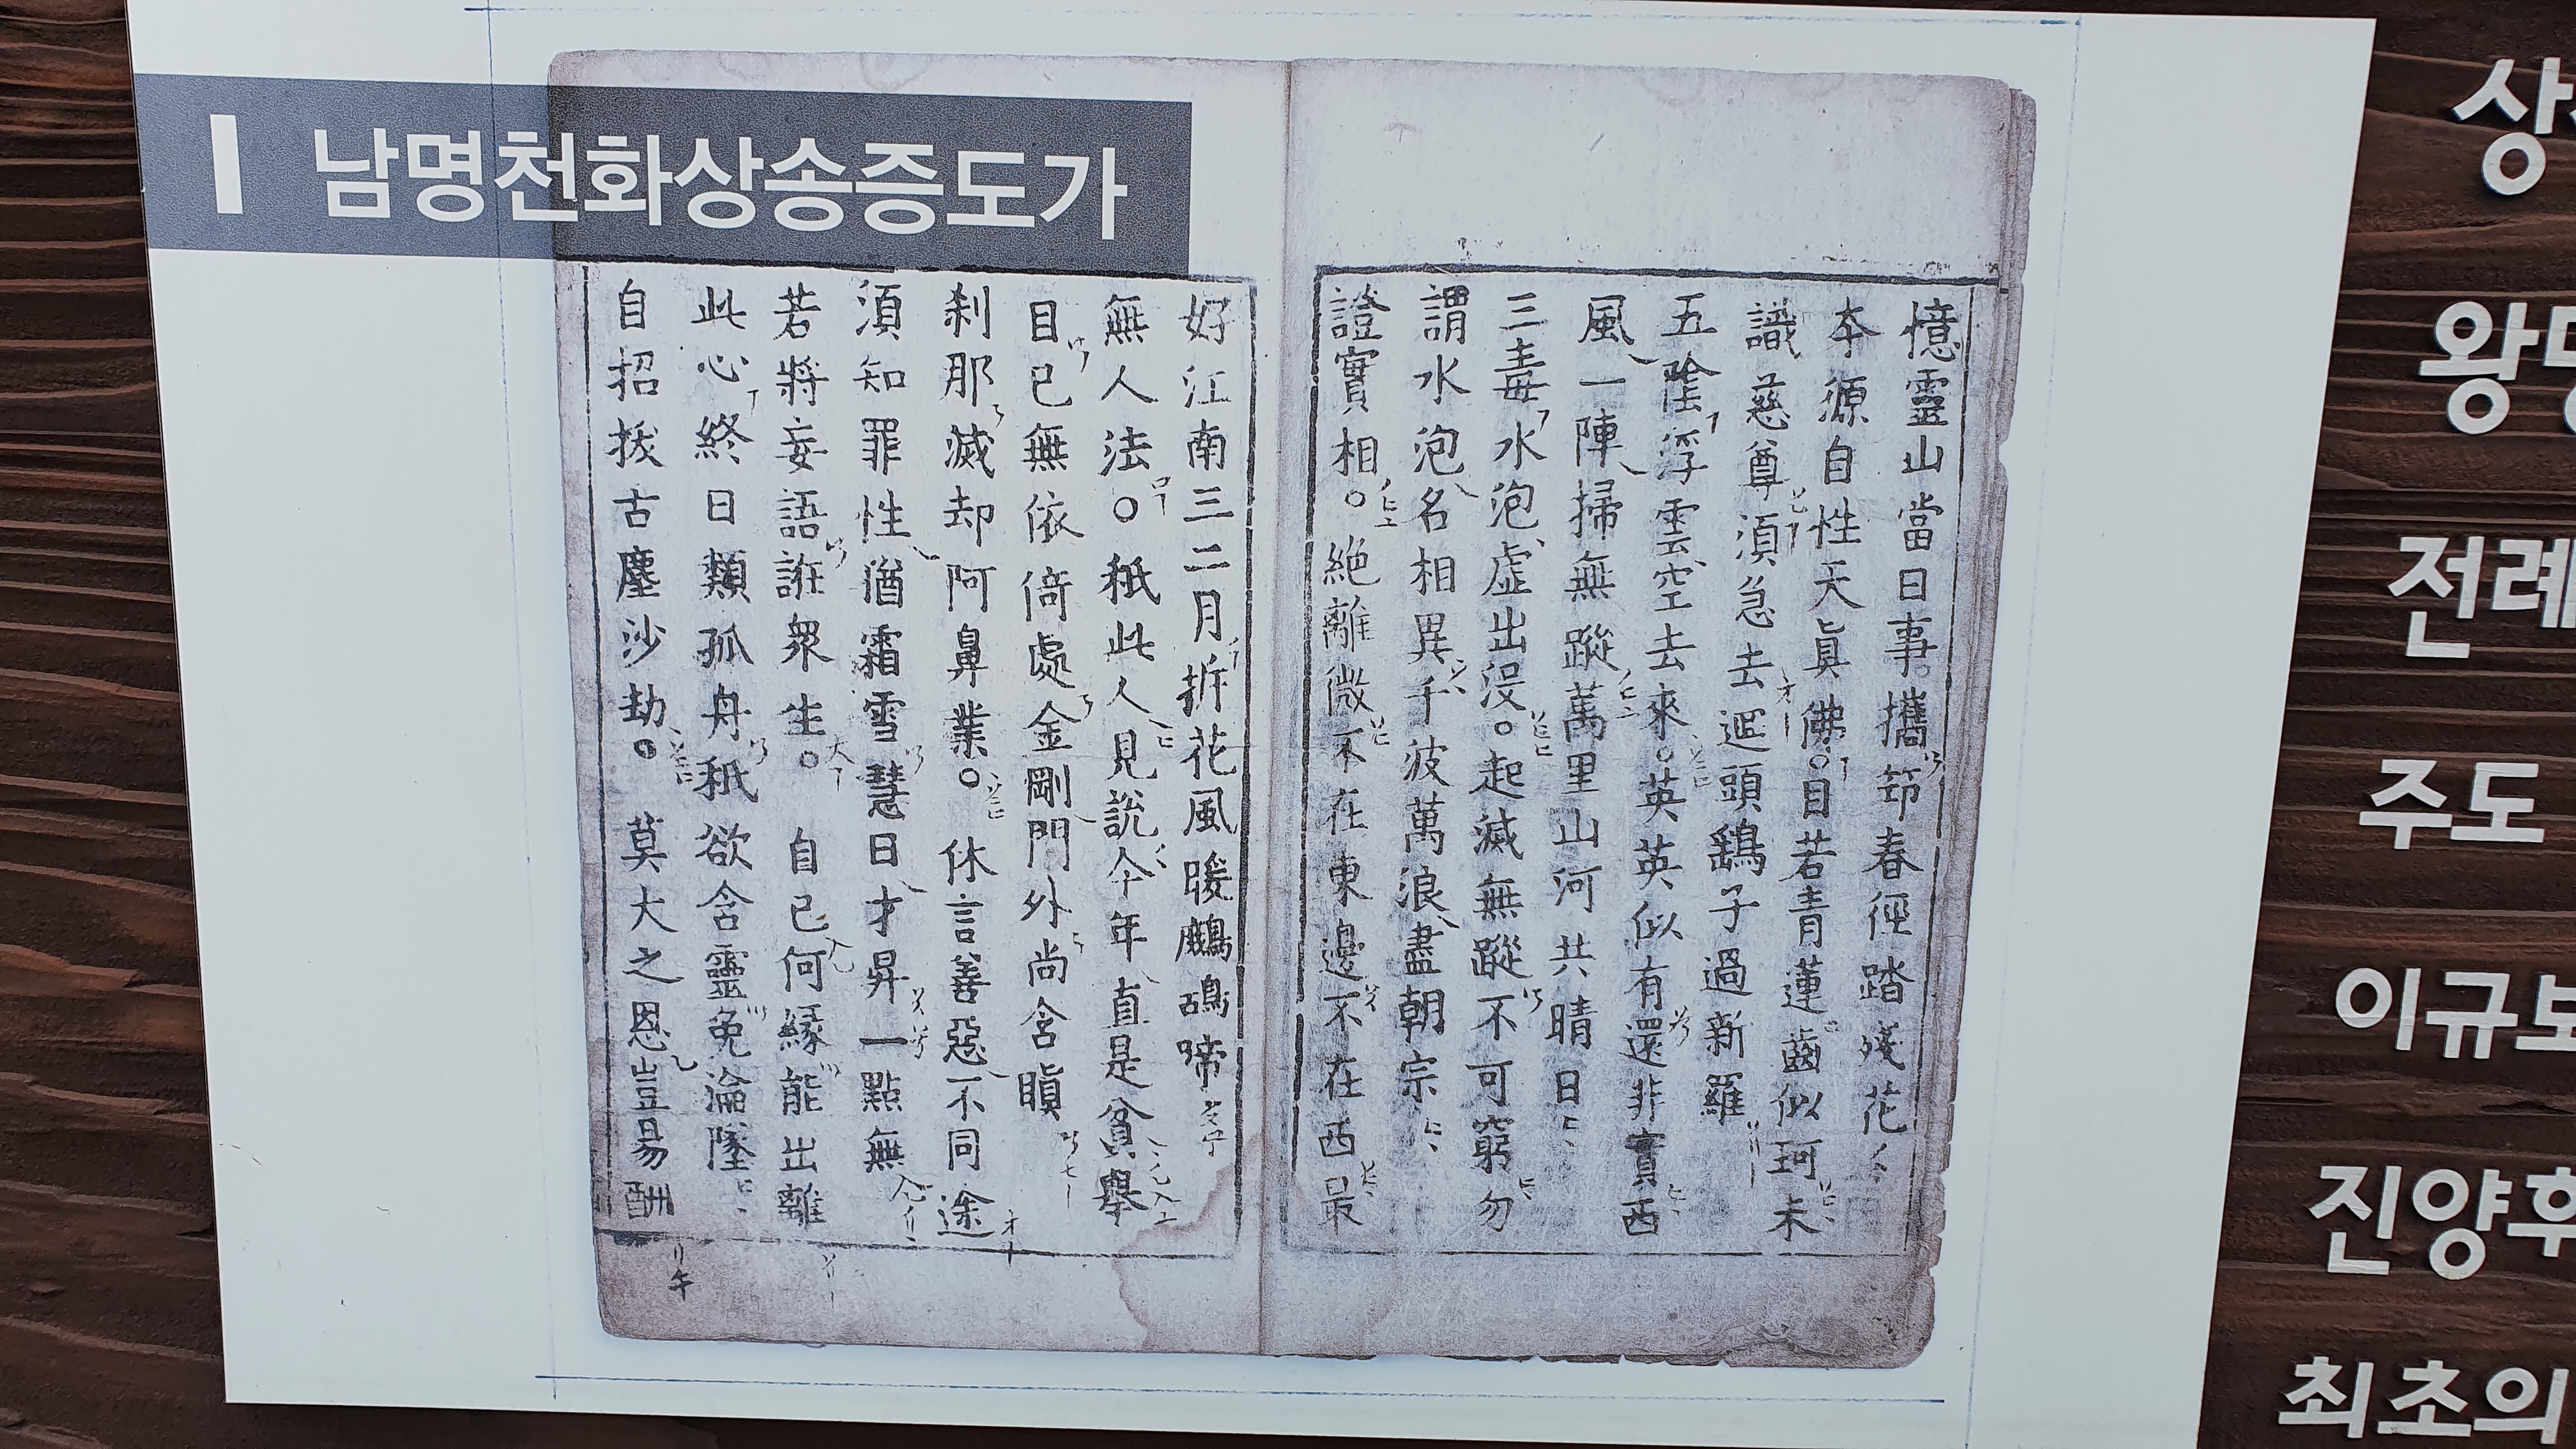 남명천화상송증도가
憶靈山當日事。攜筇春徑踏殘花
本源自性天眞佛。目若青蓮齒似珂未
識慈尊須急去迴頭鷂子過新羅
五陰浮雲空去來。英英似有還非實西
風一陣掃無蹤萬里山河共晴日
三毒水泡虛出沒。起滅無蹤不可窮勿
謂水泡名相異千波萬浪盡朝宗
證實相。絶離微不在東邊不在西最
好江南三二月拆花風暖鷓鴣啼
無人法。秖此人見說今年直是貧舉
目已無依倚處金剛門外尚含瞋
刹那滅却阿鼻業。休言善惡不同途
須知罪性猶霜雪慧日才昇一點無
若將妄語誑衆生。自己何緣能出離
此心終日類孤舟秖欲含靈免淪墜
自招拔古塵沙劫。莫大之恩豈易酬
상
왕
전례
주도
이규보
진양후
최초의